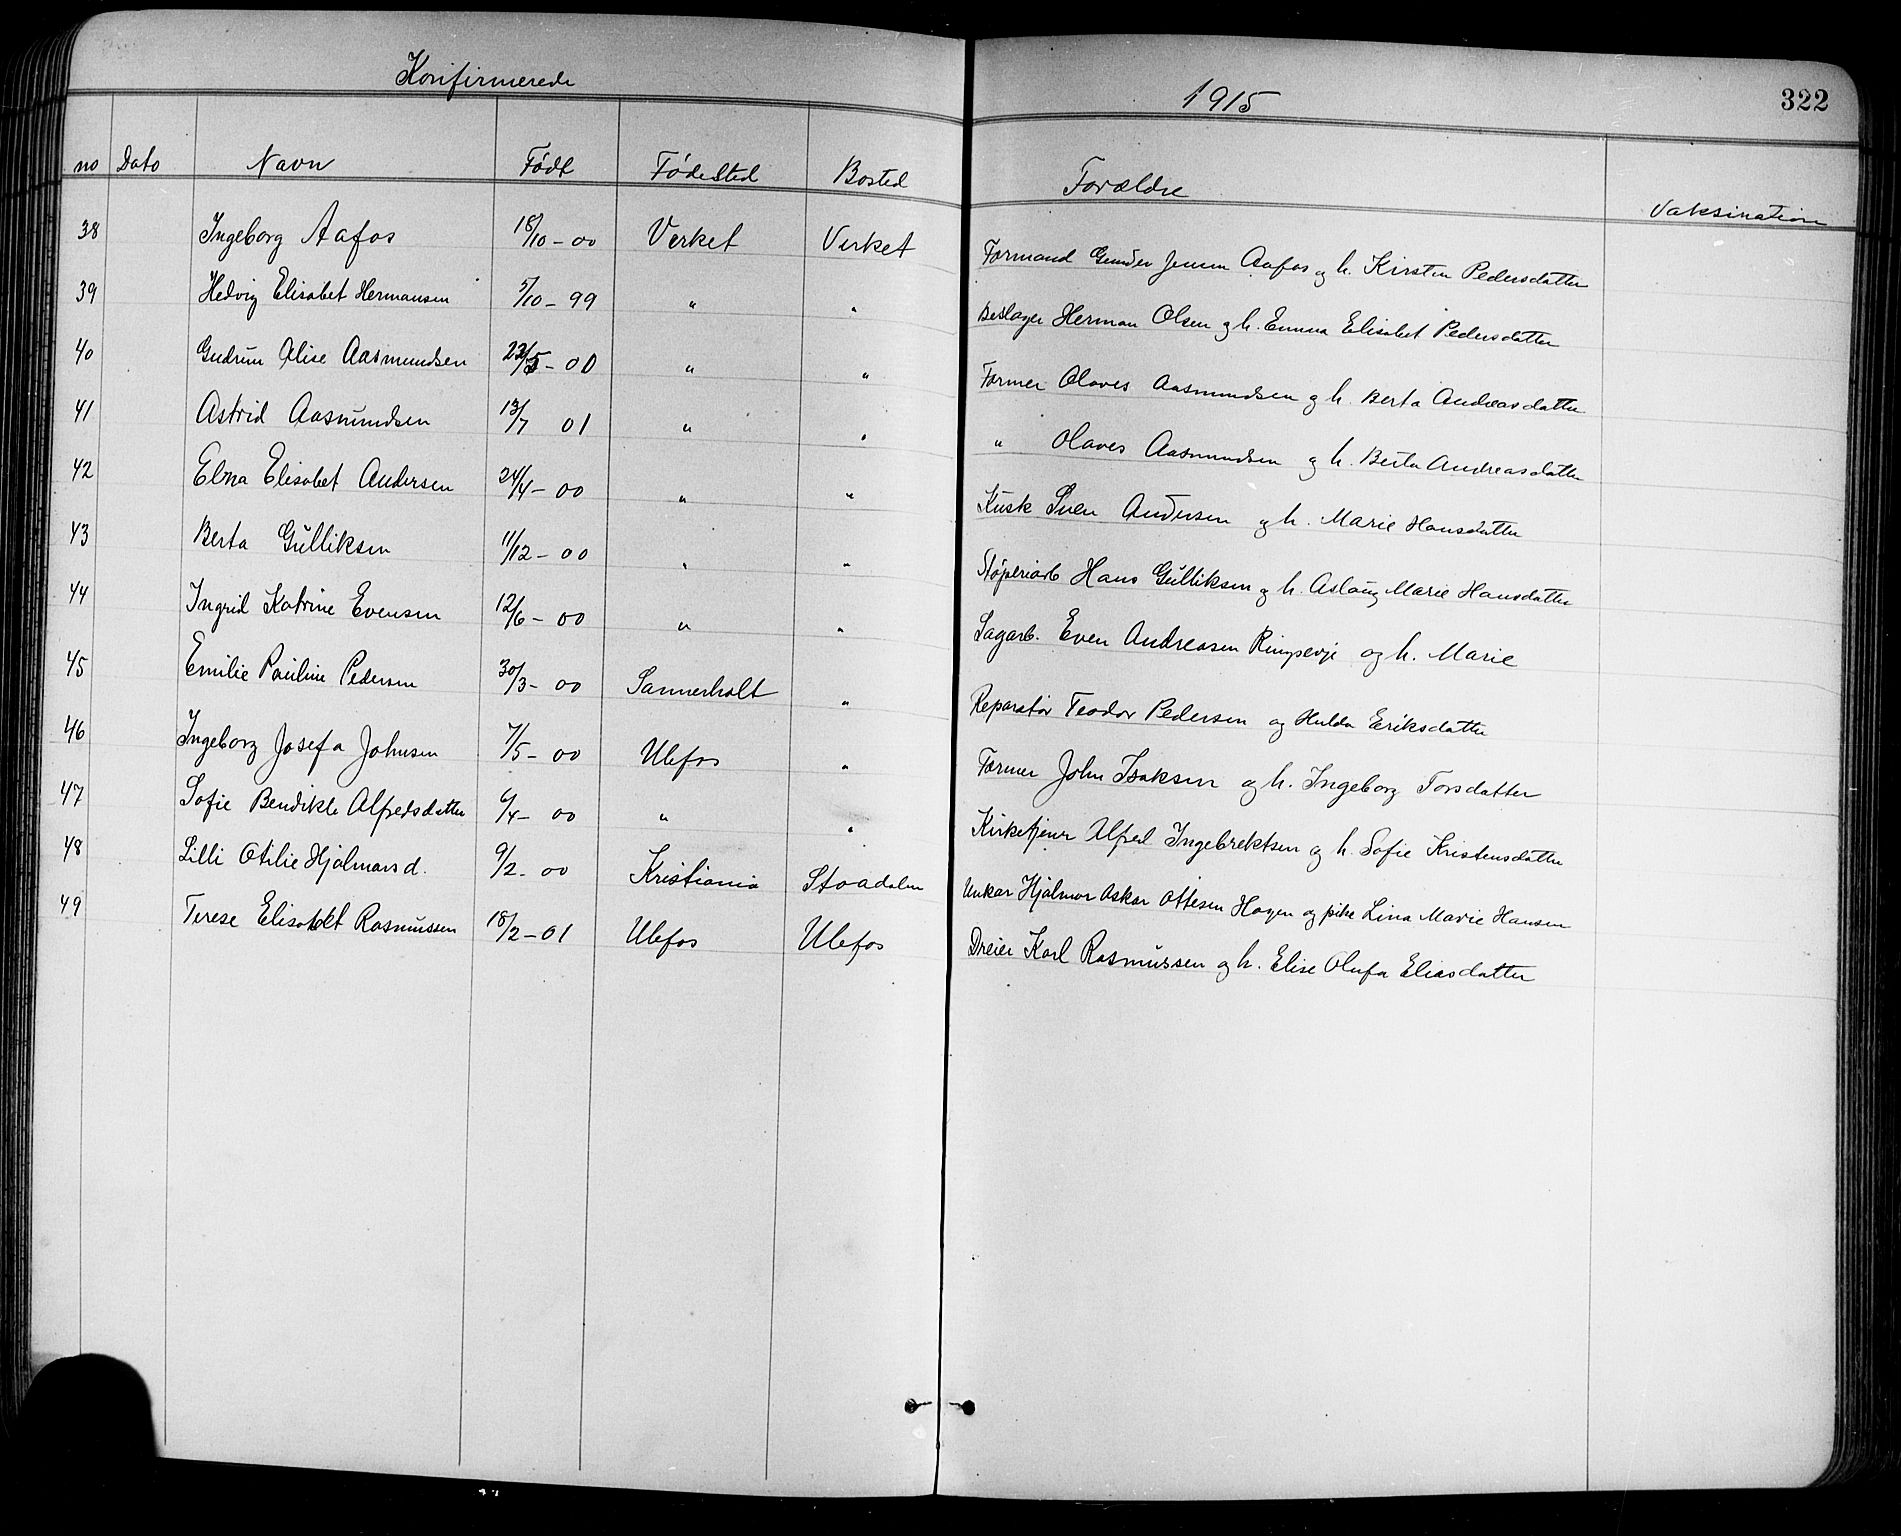 Konfirmerede 1915 322
no Dato Navn Født Fødested Bosted Forældre Vaksination
38 Ingeborg Aafos 18/10-00 Verket Verket Formand Gunder Jensen Aafos og h. Kirsten Pedersdatter
39 Hedvig Elisabet Hermansen 5/10-99 " " Beslager Herman Olsen og h. Emma Elisabet Pedersdatter
40 Gudrun Alise Aasmundsen 23/5-00 " " Former Olaves Aasmundsen og h. Berta Andreasdatter
41 Astrid Aasmundsen 13/7 01 " " " Olaves Aasmundsen og h. Berta Andreasdatter
42 Elna Elisabet Andersen 24/4-00 " " Kusk Sven Andersen og h. Marie Hansdatter
43 Berta Gulliksen 11/12-00 " " Støperiarb Hans Gulliksen og h. Aslaug Marie Hansdatter
44 Ingrid Katrine Evensen 12/6-00 " " Sagarb. Even Andreasen Ringsevje og h. Marie
45 Emilie Pauline Pedersen 30/3-00 Sannerholt " Reparatør Teodor Pedersen og Hulda Eriksdatter
46 Ingeborg Josefa Johnsen 7/5-00 Ulefos " Former John Isaksen og h. Ingeborg Torsdatter
47 Sofie Bendikte Alfredsdatter 6/4-00 " " Kirketjener Alfred Ingebrektsen og h. Sofie Kristensdatter
48 Lilli Otilie Hjalmarsd. 9/2-00 Kristiania Stoadalen Unkar Hjalmar Oskar Ottesen Hagen og pike Lina Marie Hansen
49 Terese Elisabet Rasmussen 18/2-01 Ulefos Ulefos Dreier Karl Rasmussen og h. Elise Olufa Eliasdatter